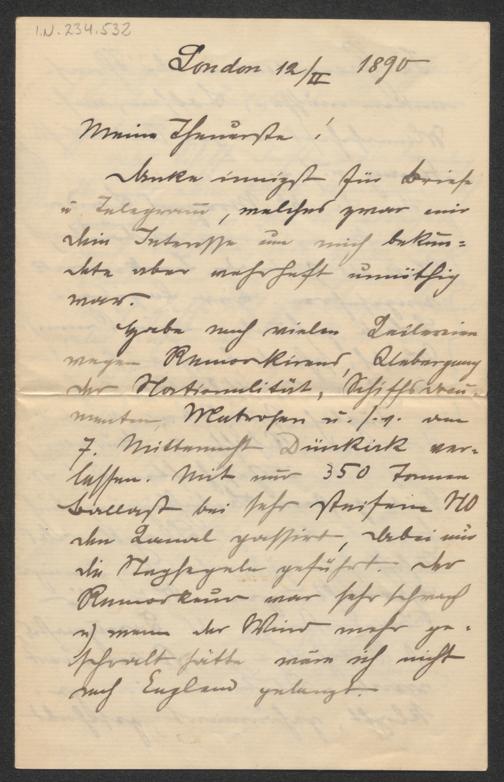 I.N. 234.532
London 12/II 1890
Meine Theuerste!
Danke innigst für Briefe
u Telegram̄, welches zwar mir
dein Interesse um mich bekun̄=
dete aber wahrhaft unnöthig
war.
Habe nach vielen
wegen Remorkirens, Uebergang
der Nationalität, Schiffsdocu=
menten, Matrosen u. s. w. am
7. Mitternacht Dünkirk ver=
lassen. Mit nur 350 Tonnen
Ballast bei sehr steifem NO
den Kanal passirt, dabei nur
die Stagsegeln geführt. Der
Remorkeur war sehr schwach
u) wenn der Wind mehr ge=
schralt hätte wäre ich nicht
nach England gelangt.